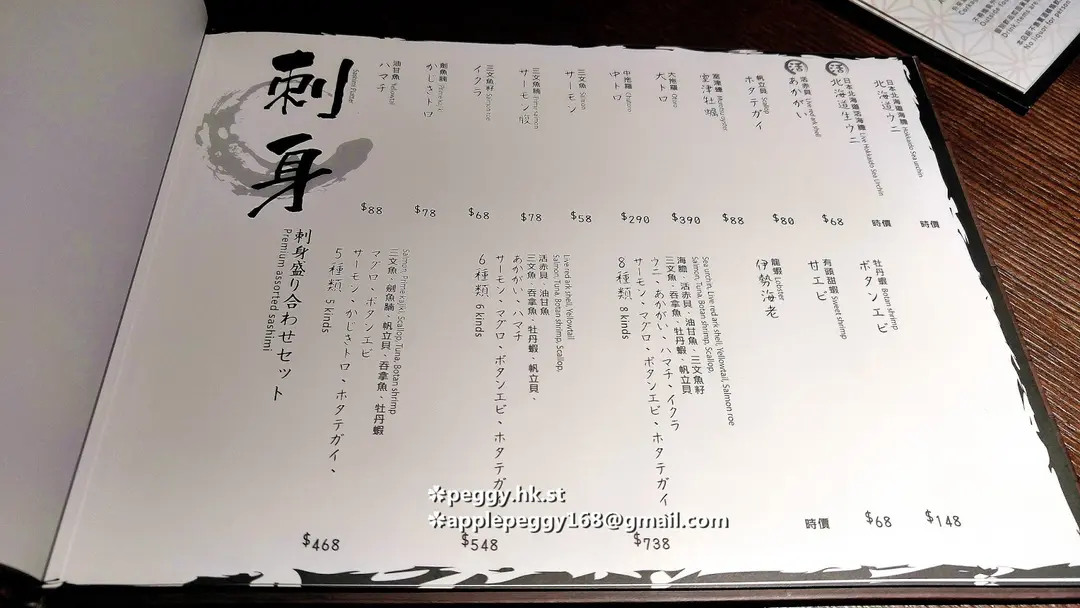 刺身
Sashimi Platter
日本北海道海膽 Hokkaido Sea urchin
北海道ウニ
時價
活
日本北海道活海膽 Live Hokkaido Sea Urchin
北海道生ウニ
時價
活
活赤貝 Live red ark shell
あかがい
$68
帆立貝 Scallop
ホタテガイ
$80
室津蠔 Murotsu oyster
室津牡蠣
$88
大拖羅 Otoro
大トロ
$390
中拖羅 Chutoro
中トロ
$290
三文魚 Salmon
サーモン
$58
三文魚腩
サーモン腹
$78
三文魚籽 Salmon roe
イクラ
$68
劍魚腩
かじきトロ
$78
油甘魚 Yellowtail
ハマチ
$88
牡丹蝦 Botan shrimp
ボタンエビ
$148
有頭甜蝦 Sweet shrimp
甘エビ
$68
龍蝦 Lobster
伊勢海老
時價
刺身盛り合わせセット
Premium assorted sashimi
Sea urchin, Live red ark shell, Yellowtail, Salmon roe
Salmon, Tuna, Botan shrimp, Scallop,
海膽、活赤貝、油甘魚、三文魚籽
三文魚、吞拿魚、牡丹蝦、帆立貝
ウニ、あかがい、ハマチ、イクラ
サーモン、マグロ、ボタンエビ、ホタテガイ
8種類 8 kinds
$738
Live red ark shell, Yellowtail
Salmon, Tuna, Botan shrimp, Scallop,
活赤貝、油甘魚
三文魚、吞拿魚、牡丹蝦、帆立貝、
あかがい、ハマチ
サーモン、マグロ、ボタンエビ、ホタテガ
6種類 6 kinds
$548
Salmon, Prime kajiki, Scallop, Tuna, Botan shrimp
三文魚、劍魚腩、帆立貝、吞拿魚、牡丹蝦
マグロ、ボタンエビ
サーモン、かじきトロ、ホタテガイ、
5種類 5 kinds
$468
✽peggy.hk.st
✽applepeggy168@gmail.com